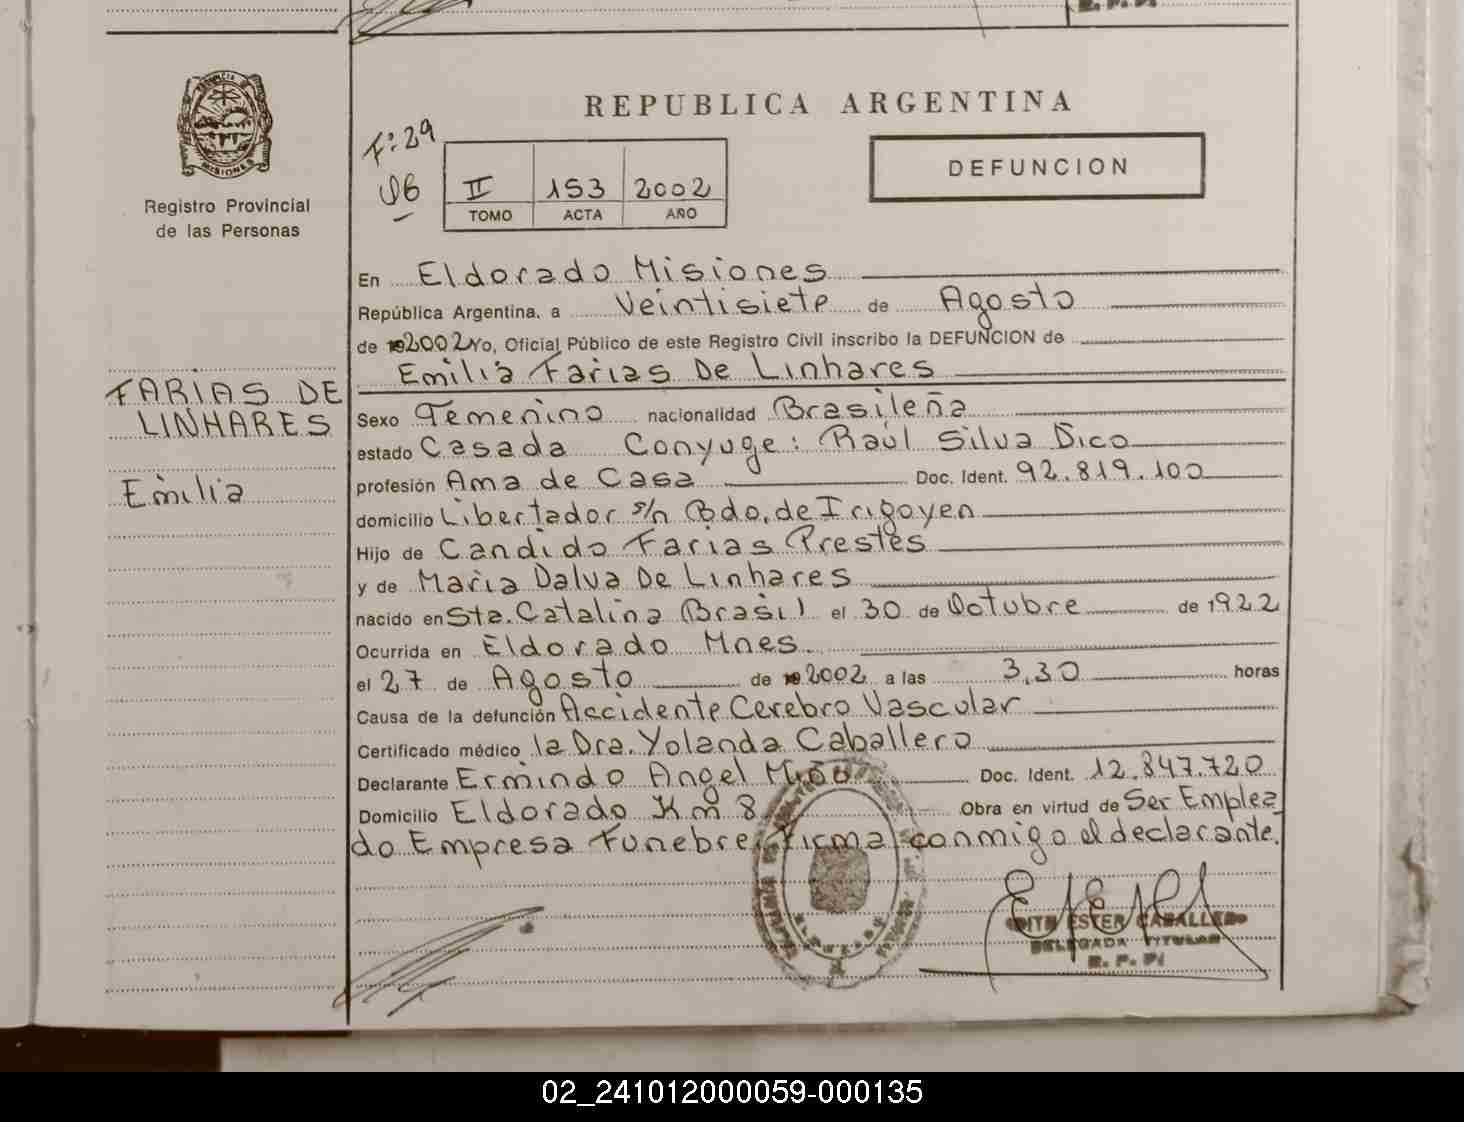 PROVINCIA DE
MISIONES
Registro Provincial
de las Personas
REPUBLICA ARGENTINA
DEFUNCION
Fº 29
II 153 2002
TOMO ACTA AÑO
FARIAS DE
LINHARES
Emilia
En Eldorado Misiones
República Argentina, a Veintisiete de Agosto
de 2002 Yo, Oficial Público de este Registro Civil inscribo la DEFUNCION de
Emilia Farias De Linhares
Sexo Femenino nacionalidad Brasileña
estado Casada Conyuge: Raúl Silva Dico
profesión Ama de Casa Doc. Ident. 92.819.100
domicilio Libertador s/n Bdo. de Irigoyen
Hijo de Candido Farias Prestes
y de Maria Dalva De Linhares
nacido en Sta. Catalina Brasil el 30 de Octubre de 1922
Ocurrida en Eldorado Mnes.
el 27 de Agosto de 2002 a las 3,30 horas
Causa de la defunción Accidente Cerebro Vascular
Certificado médico la Dra. Yolanda Caballero
Declarante Ermindo Angel Miño Doc. Ident. 12.847.720
Domicilio Eldorado Km 8 Obra en virtud de Ser Emplea
do Empresa Funebre. Firma conmigo el declarante.
EDITH ESTER CABALLERO
DELEGADA TITULAR
R. P. P.
02_241012000059-000135